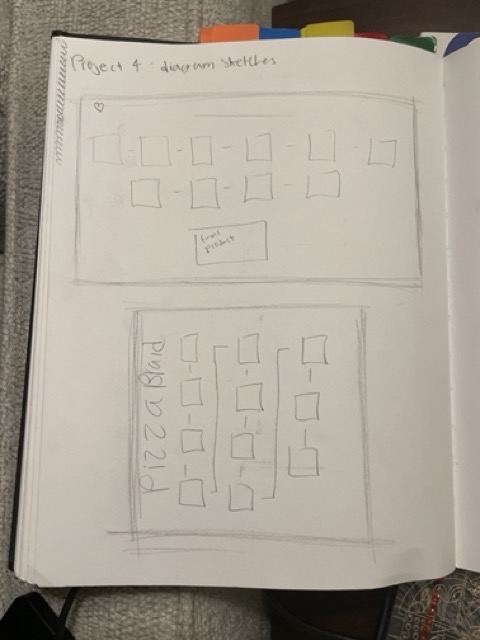 Project 4 : diagram sketches
final
product
Pizza Braid